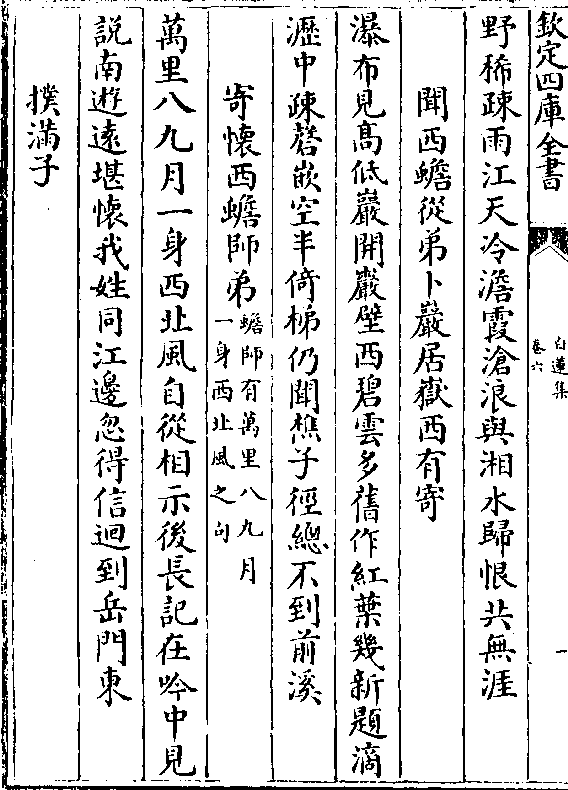 欽定四庫全書
白蓮集
卷六
一
野稀疎雨江天冷澹霞滄浪與湘水歸恨共無涯
聞西蟾從弟卜巖居嶽西有寄
瀑布見髙低巖開巖壁西碧雲多舊作紅葉幾新題滴
瀝中疎磬嵌空半倚梯仍聞樵子徑總不到前溪
寄懷西蟾師弟
蟾師有萬里八九月
一身西北風之句
萬里八九月一身西北風自從相示後長記在吟中見
說南遊遠堪懷我姓同江邊忽得信迴到岳門東
撲滿子